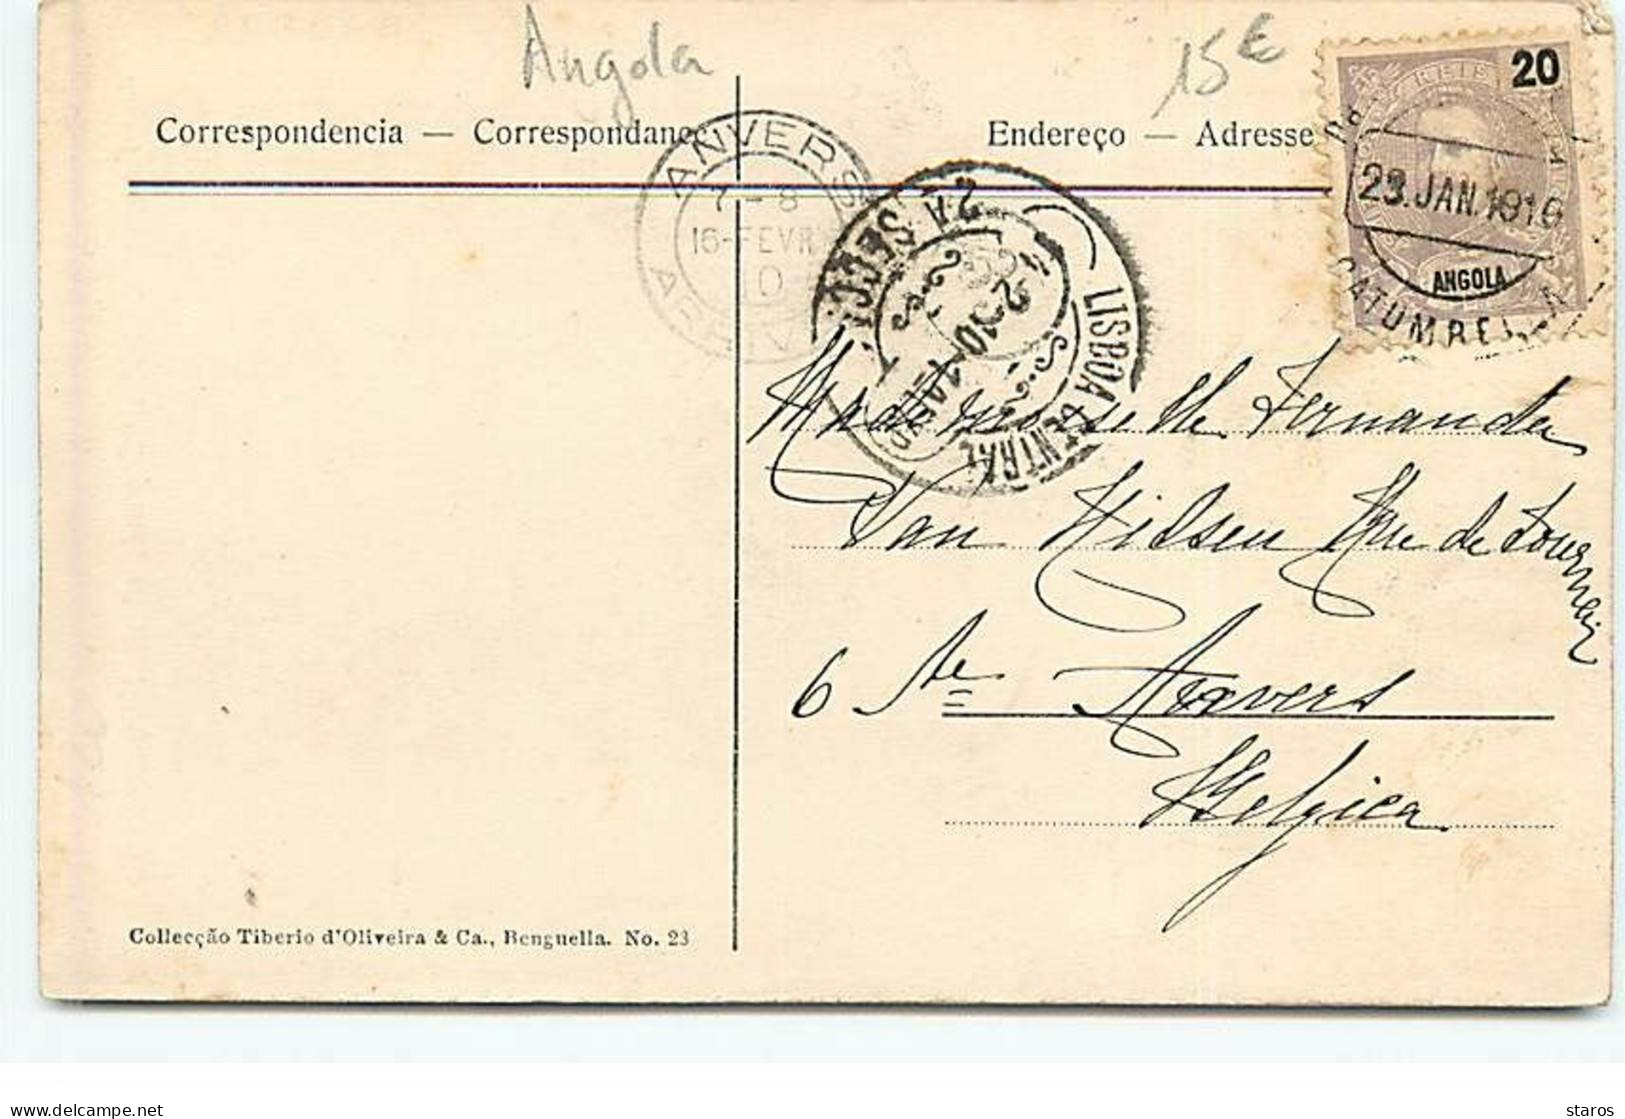 Angola
15€
Correspondencia — Correspondance
Endereço — Adresse
REIS
20
23.JAN.1910
ANGOLA
CATUMBELLA
ANVERS
7-8
16-FEVR
10
LISBOA CENTRAL
2A SECC.
Mademoiselle Fernanda
Van Hilsen Rue de Tournai
6 Ste Anvers
Belgica
Collecção Tiberio d'Oliveira & Ca., Benguella. No. 23
delcampe.net
staros